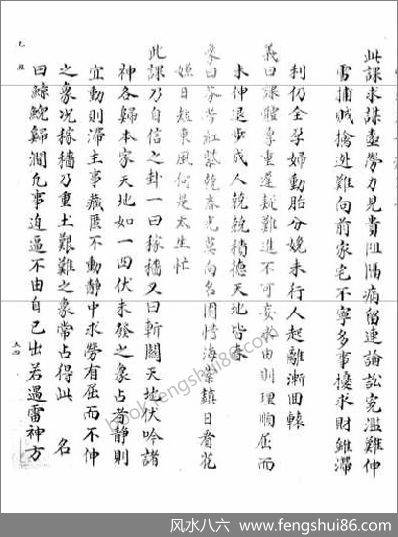 此課求謀盡勞力見貴阻隔病留連論訟寃濫難伸
雷捕賊擒处難向前家宅不寧多事擾求財雖滯
利仍全孕婦動胎分娩未行人起離漸回轅
義曰課體象重蓬難進不可妄求由則理順屈而
未伸退步成人天地皆春
象曰紅紫乾春光莫向名園情海棠鎮日看花
嫌日短東風何是太生忙
此課乃自信之卦一曰稼穡又曰斬關天地伏吟諸
神各歸本家天地如一四伏未發之象占者靜則
宜動則滯主事藏匿不動靜中求勞有屈而不伸
之象况稼穡乃重土艱難之象常占得此 名
曰鯨鯢歸澗凡事迫逼不由自己出若遇雷神方
book.fengshui86.com
风水八六 - www.fengshui86.com